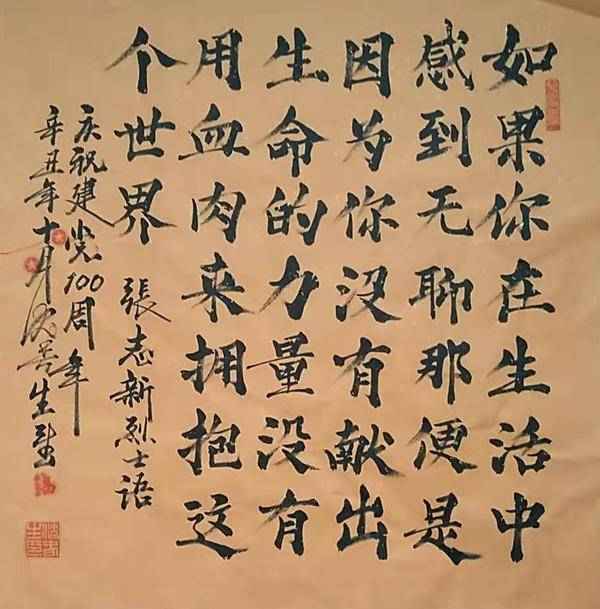 如果你在生活中
感到无聊那便是
因为你没有献出
生命的力量没有
用血肉来拥抱这
个世界
張志新烈士语
庆祝建党100周年
辛丑年十月善生